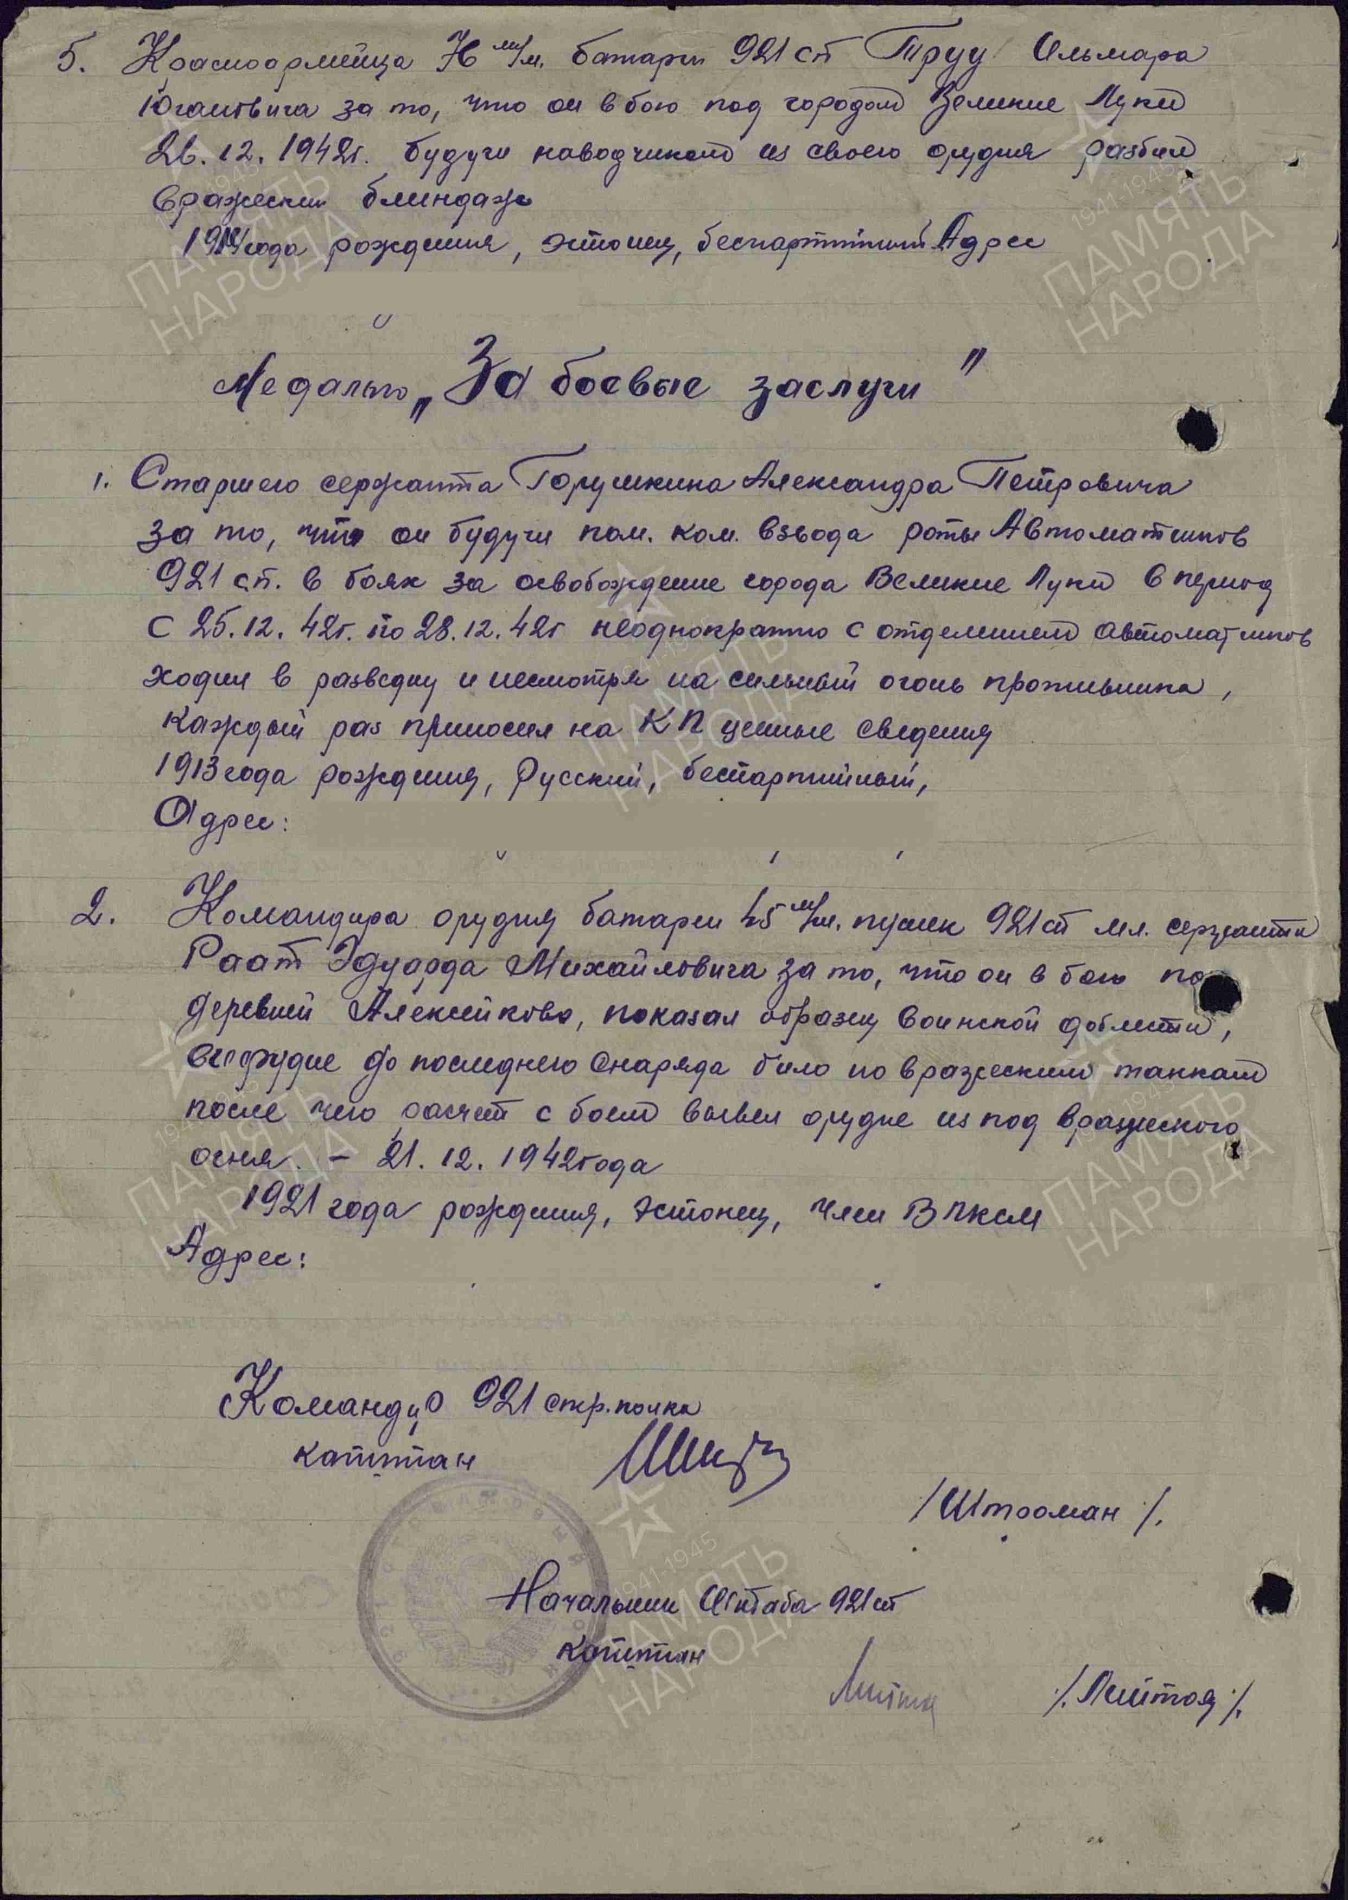 5. Красноармейца 76 м/м. батареи 921 сп Труу Ильмара
Югановича за то, что он в бою под городом Великие Луки
26.12.1942г. будучи наводчиком из своего орудия разбил
вражеский блиндаж
года рождения, эстонец, беспартийный Адрес
Медалью „За боевые заслуги"
1. Старшего сержанта Горушкина Александра Петровича
за то, что он будучи пом. ком. взвода роты Автоматчиков
921 сп. в боях за освобождение города Великие Луки в период
с 25.12.42г. по 28.12.42г неоднократно с отделением автоматчиков
ходил в разведку и несмотря на сильный огонь противника,
каждый раз приносил на КП ценные сведения
1913 года рождения, русский, беспартийный,
Адрес:
2. Командира орудия батареи 45 м/м. пушек 921 сп мл. сержанта
Раат Эдуарда Михайловича за то, что он в бою по
деревней Алексейково, показал образец воинской доблести,
его орудие до последнего снаряда било по вражеским танкам
после чего расчет с боем вывел орудие из под вражеского
огня. – 21.12.1942 года
1921 года рождения, эстонец, член ВЛКСМ
Адрес:
Командир 921 стр. полка
капитан
/Штроман/.
Начальник Штаба 921 сп
капитан
/.Лийтоя/.
ПАМЯТЬ НАРОДА
1941-1945